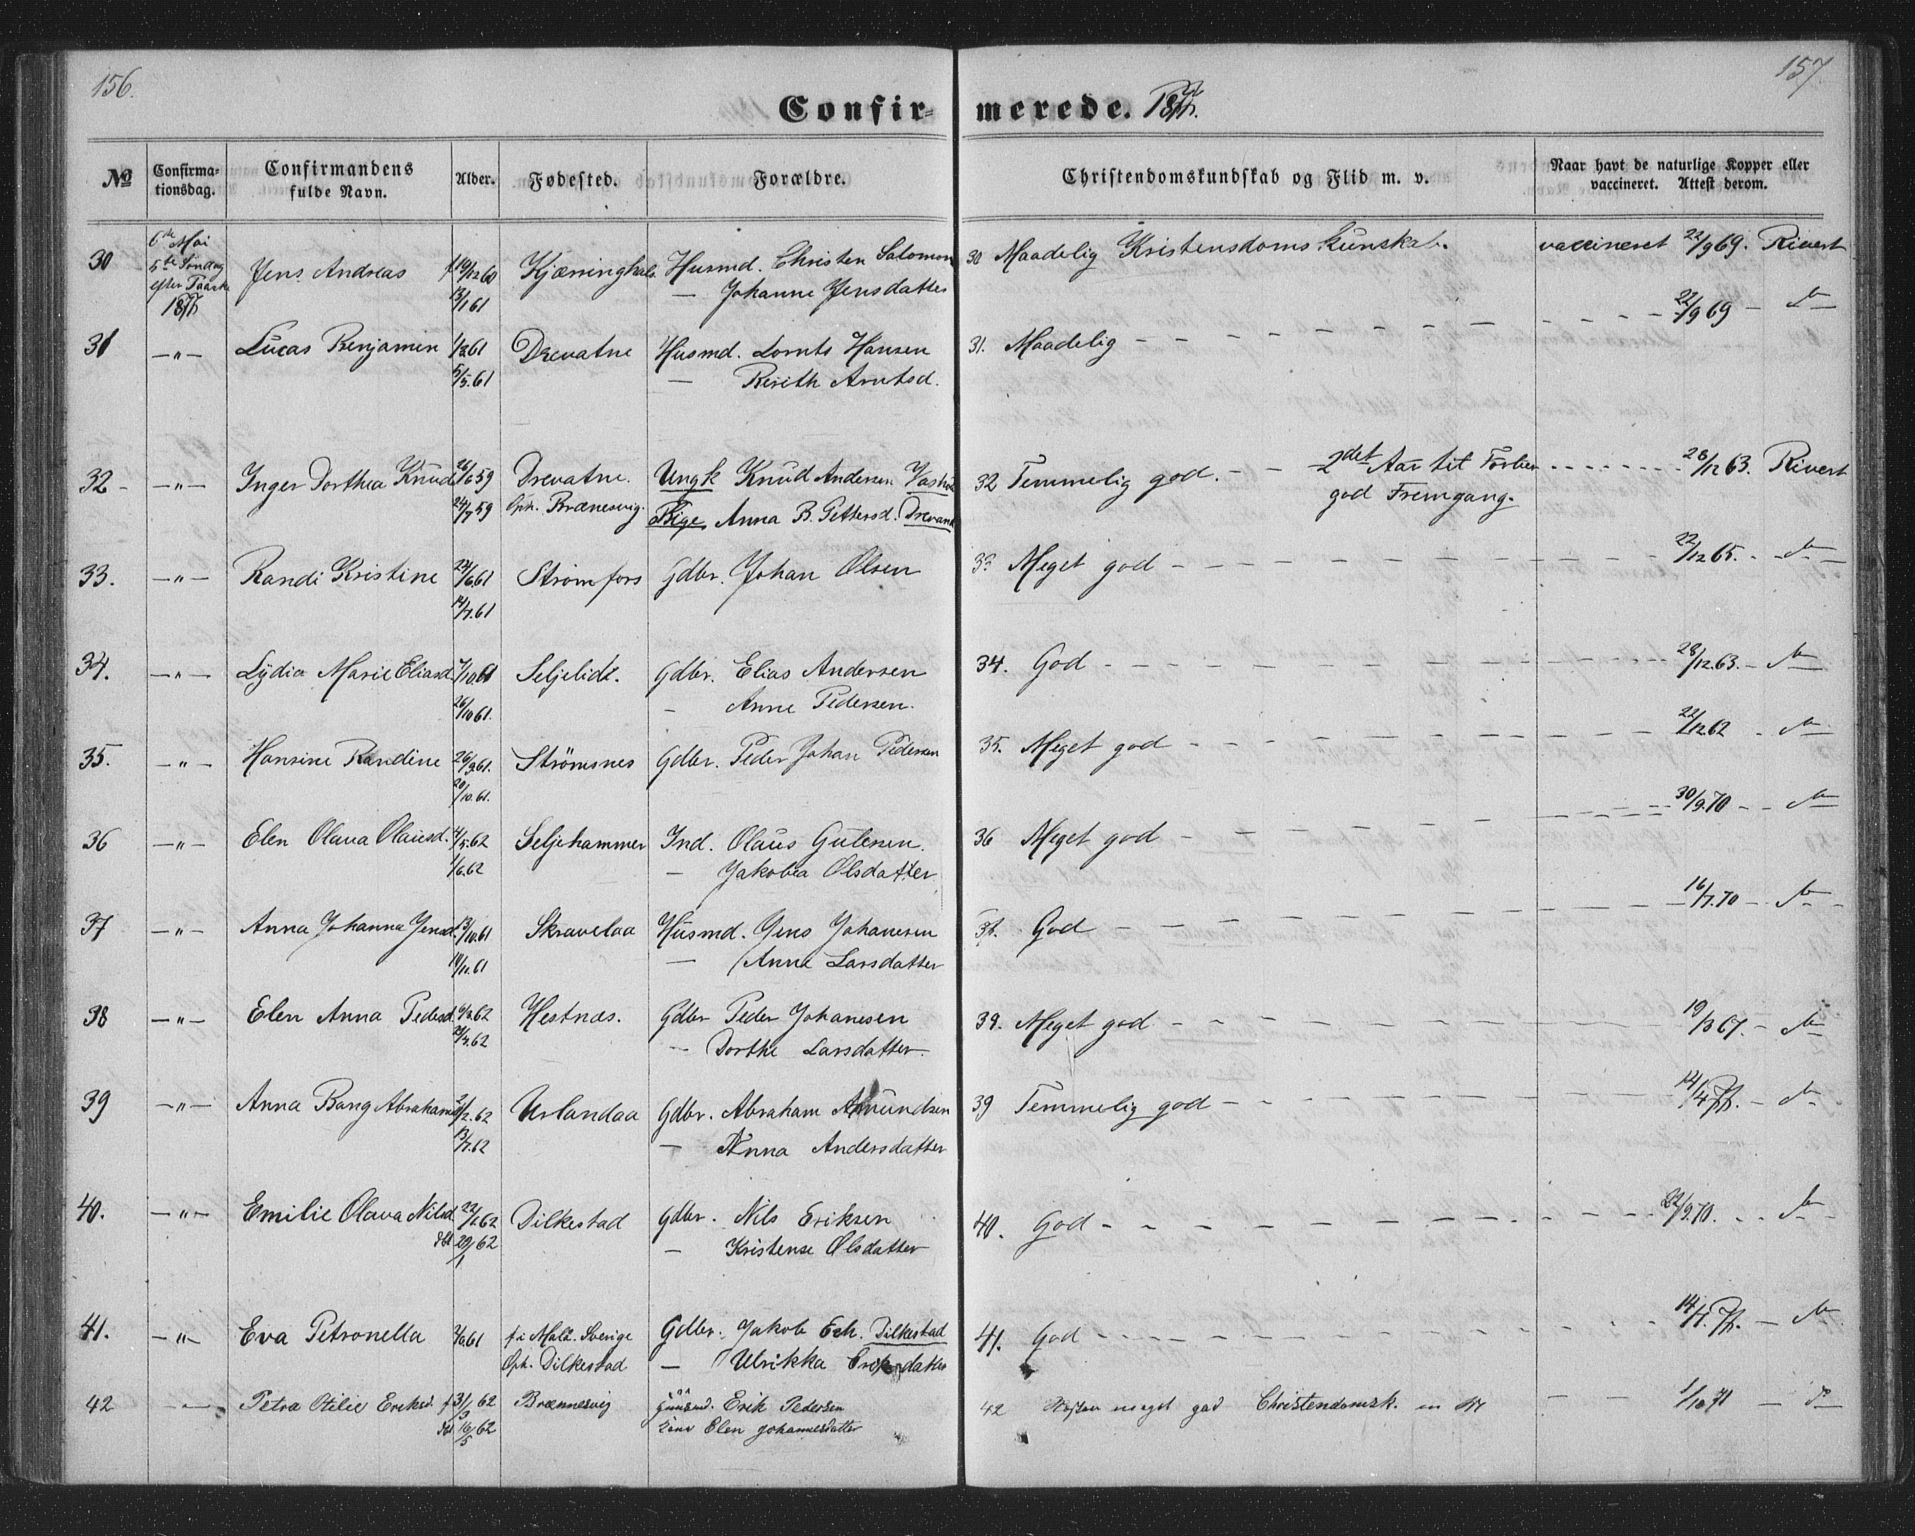 156.
157
Confir-merede. 1877.
No
Confirma-tionsdag.
Confirmandens fulde Navn.
Alder.
Fødested.
Forældre.
Christendomskundskab og Flid m. v.
Naar havt de naturlige Kopper eller vaccineret. Attest derom.
30 6te Mai 5te Søndag efter Paaske 1877 Jens Andreas f 19/12 60 Husmd. Christen Salomon 30 Maadelig Kristensdoms Kunskab. vaccineret 22/9 69. Rivert
13/1 61 — Johanne Jensdatter
31 —"— Lucas Benjamin 61 Drevatne Husmd. Lornts Hansen 31. Maadelig — — — 22/9 69 —
5/5.61 — Arntsd.
32 - —"— Inger Dorthea Knud 26/6 59 Drevatne. Ungk Knud Andersen 32 Temmelig god. - - 2det Aar til Forber. 28/12 63. Rivert
24/7 59 Oph. Brænesvig. Pige Anna B. Pettersd. god Fremgang.
33. —"— Randi Kristine 24/6.61 Strømfors Gdbr. Johan Olsen 33 Meget god — — 22/12 65. -
14/7.61
34. —"— Lydia Marie Eliasd. 7/10.61 Seljelidt. Gdbr. Elias Andersen 34. God - — — 28/12 63. -
26/10 61. - Anne Pedersen.
35. —"— Hansine Randine 26/9.61. Strømsnes Gdbr. Peder Johan Pedersen 35. Meget god - — — 22/12 62 -
20/10.61.
36 —"— Elen Olava Olausd. 4/5.62 Seljehammer Ind. Olaus Gulesen. 36 Meget god - — — 30/9.70 - -
1/6.62 — Jakobea Olsdatter
37 —"— Anna Johanna Jensd. 13/10.61 Skravelaa Husmd. Jens Johanesen 37. God — — 16/7.70 -
10/11.61 — Anna Larsdatter
38 —"— Elen Anna Pedersd. 62 Hestnæs. Gdbr Peder Johanesen 39. Meget god — — 19/3 67. -
21/4.62 — Dorthe Larsdatter.
39 —"— Anna Bang Abrahamsd 2/2.62 Urlandaa Gdbr. Abraham Amundsen 39 Temmelig god — — 14/4 77. -
13/7.62 — Anna Andersdatter
40. —"— Emilie Olava Nilsd 22/1.62 Dilkestad Gdbr. Nils Eriksen 40. God - - — 22/9.70. - -
dbt 29/1 62 — Kristense Olsdatter
41. —"— Eva Petronella 61 f. i Malå. Sverige Gdbr. Jakob Erk. Dilkestad 41. God - - — 14/4.77. —
Oph. Dilkestad — Ulrikka Eriksdatter
42 — Petra Otilie Eriksd. f 31/3 62 Brænnesvig Erik Pedersen 42 meget god Christendomsk. — — 1/10 71 —
dbt 16/5 62 Elen Johannesdatter